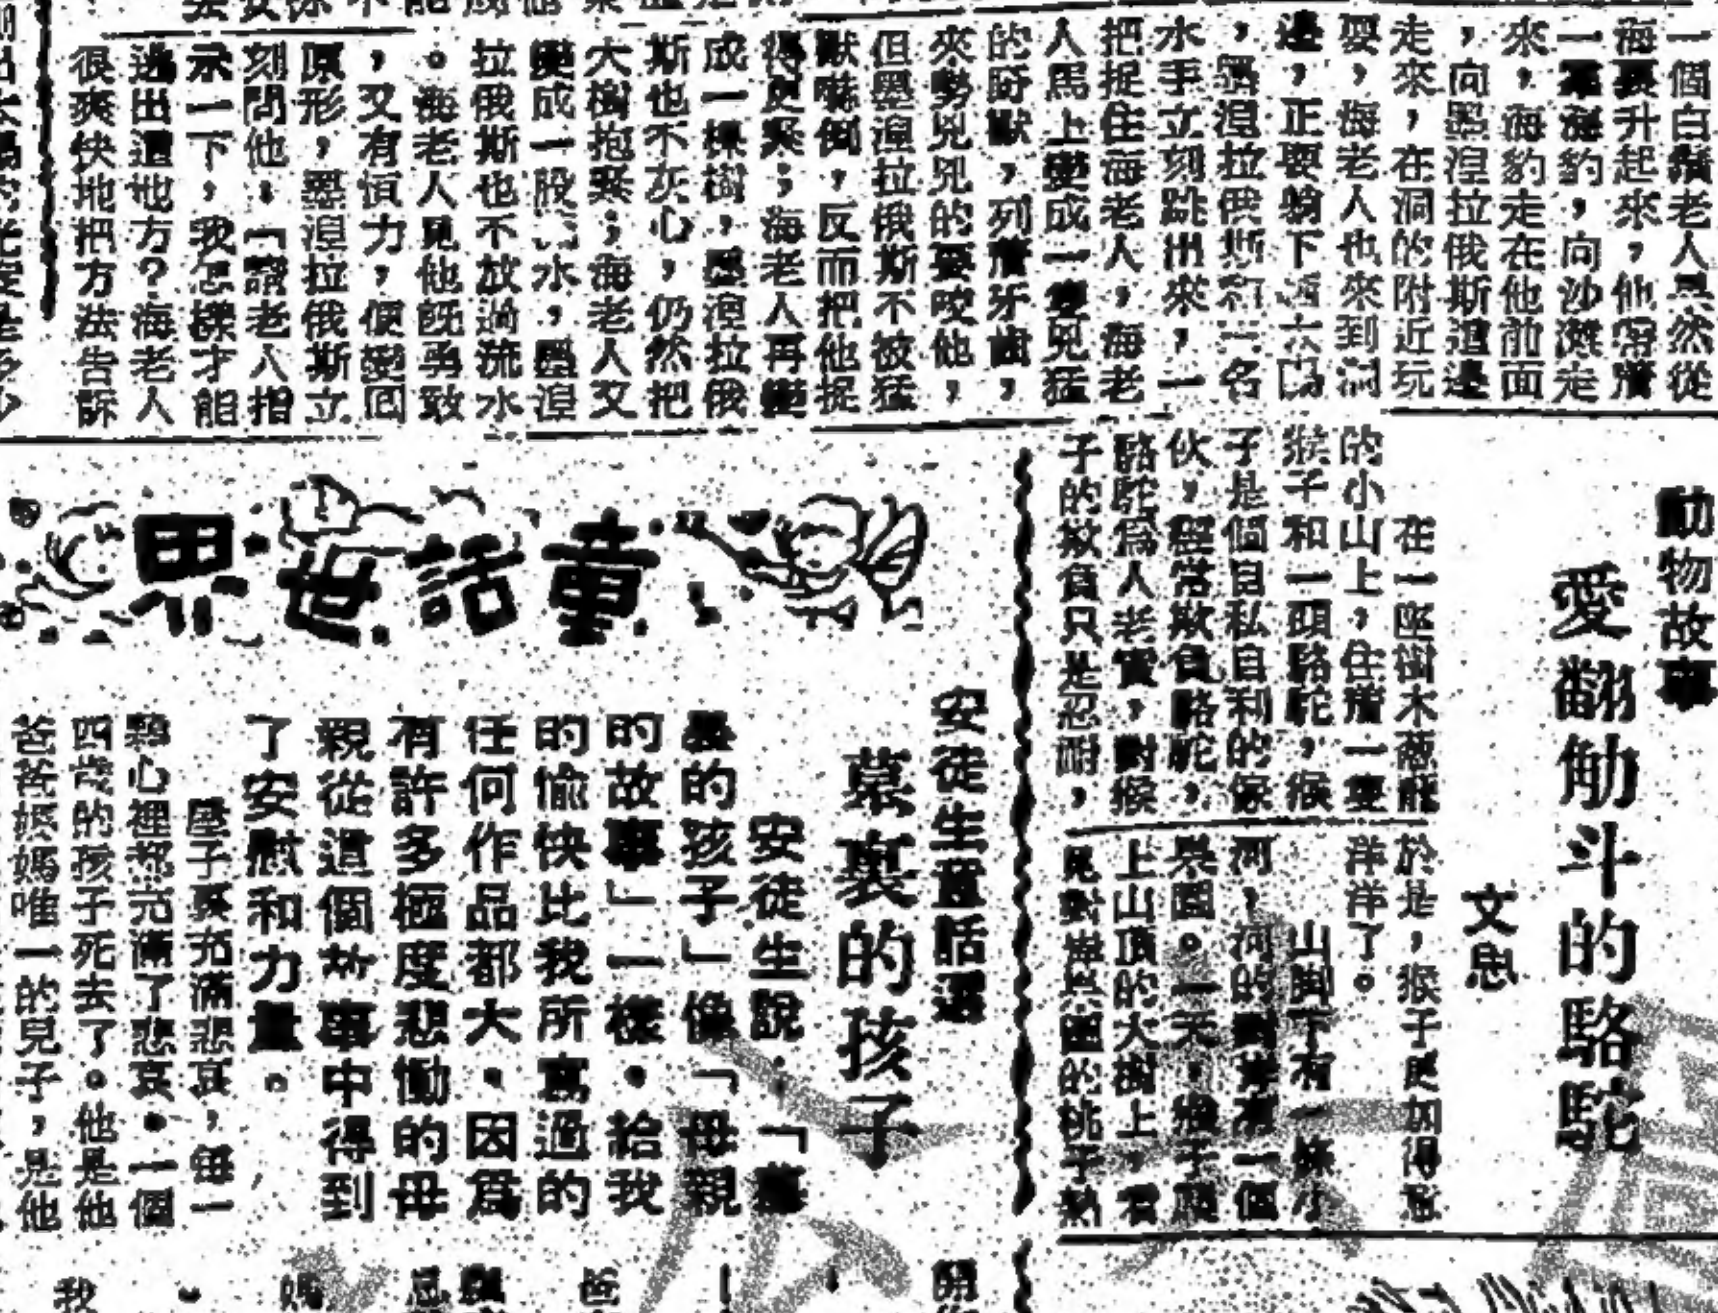 一個白鬚老人果然從
海裏升起來，他帶着
一羣海豹，向沙灘走
來，海豹走在他前面
，向墨涅拉俄斯這邊
走來，在洞的附近玩
耍，海老人也來到洞
邊，正要躺下
，墨涅拉俄斯和一名
水手立刻跳出來，一
把捉住海老人，海老
人馬上變成一隻兇猛
的野獸，列着牙齒，
來勢兇兇的要咬他，
但墨涅拉俄斯不被猛
獸嚇倒，反而把他捉
得更緊；海老人再變
成一棵樹，墨涅拉俄
斯也不灰心，仍然把
大樹抱緊；海老人又
變成一股水，墨涅
拉俄斯也不放過流水
。海老人見他既勇敢
，又有恒力，便變回
原形，墨涅拉俄斯立
刻問他：「請老人指
示一下，我怎樣才能
逃出這地方？海老人
很爽快地把方法告訴
動物故事
愛翻觔斗的駱駝
文思
在一座樹木蔥蘢
的小山上，住着一隻
猴子和一頭駱駝，猴
子是個自私自利的傢
伙，經常欺負駱駝，
駱駝為人老實，對猴
子的欺負只是忍耐，
於是，猴子更加得意
洋洋了。
山脚下有一條小
河，河的對岸有一個
果園。一天，猴子爬
上山頂的大樹上，看
見對岸果園的桃子熟
童話世界
安徒生童話選
墓裏的孩子
安徒生說：「墓
裏的孩子」像「母親
的故事」一樣．給我
的愉快比我所寫過的
任何作品都大．因爲
有許多極度悲慟的母
親從這個故事中得到
了安慰和力量。
屋子裏充滿悲哀，每一
顆心裡都充滿了悲哀．一個
四歲的孩子死去了。他是他
爸爸媽媽唯一的兒子，是他